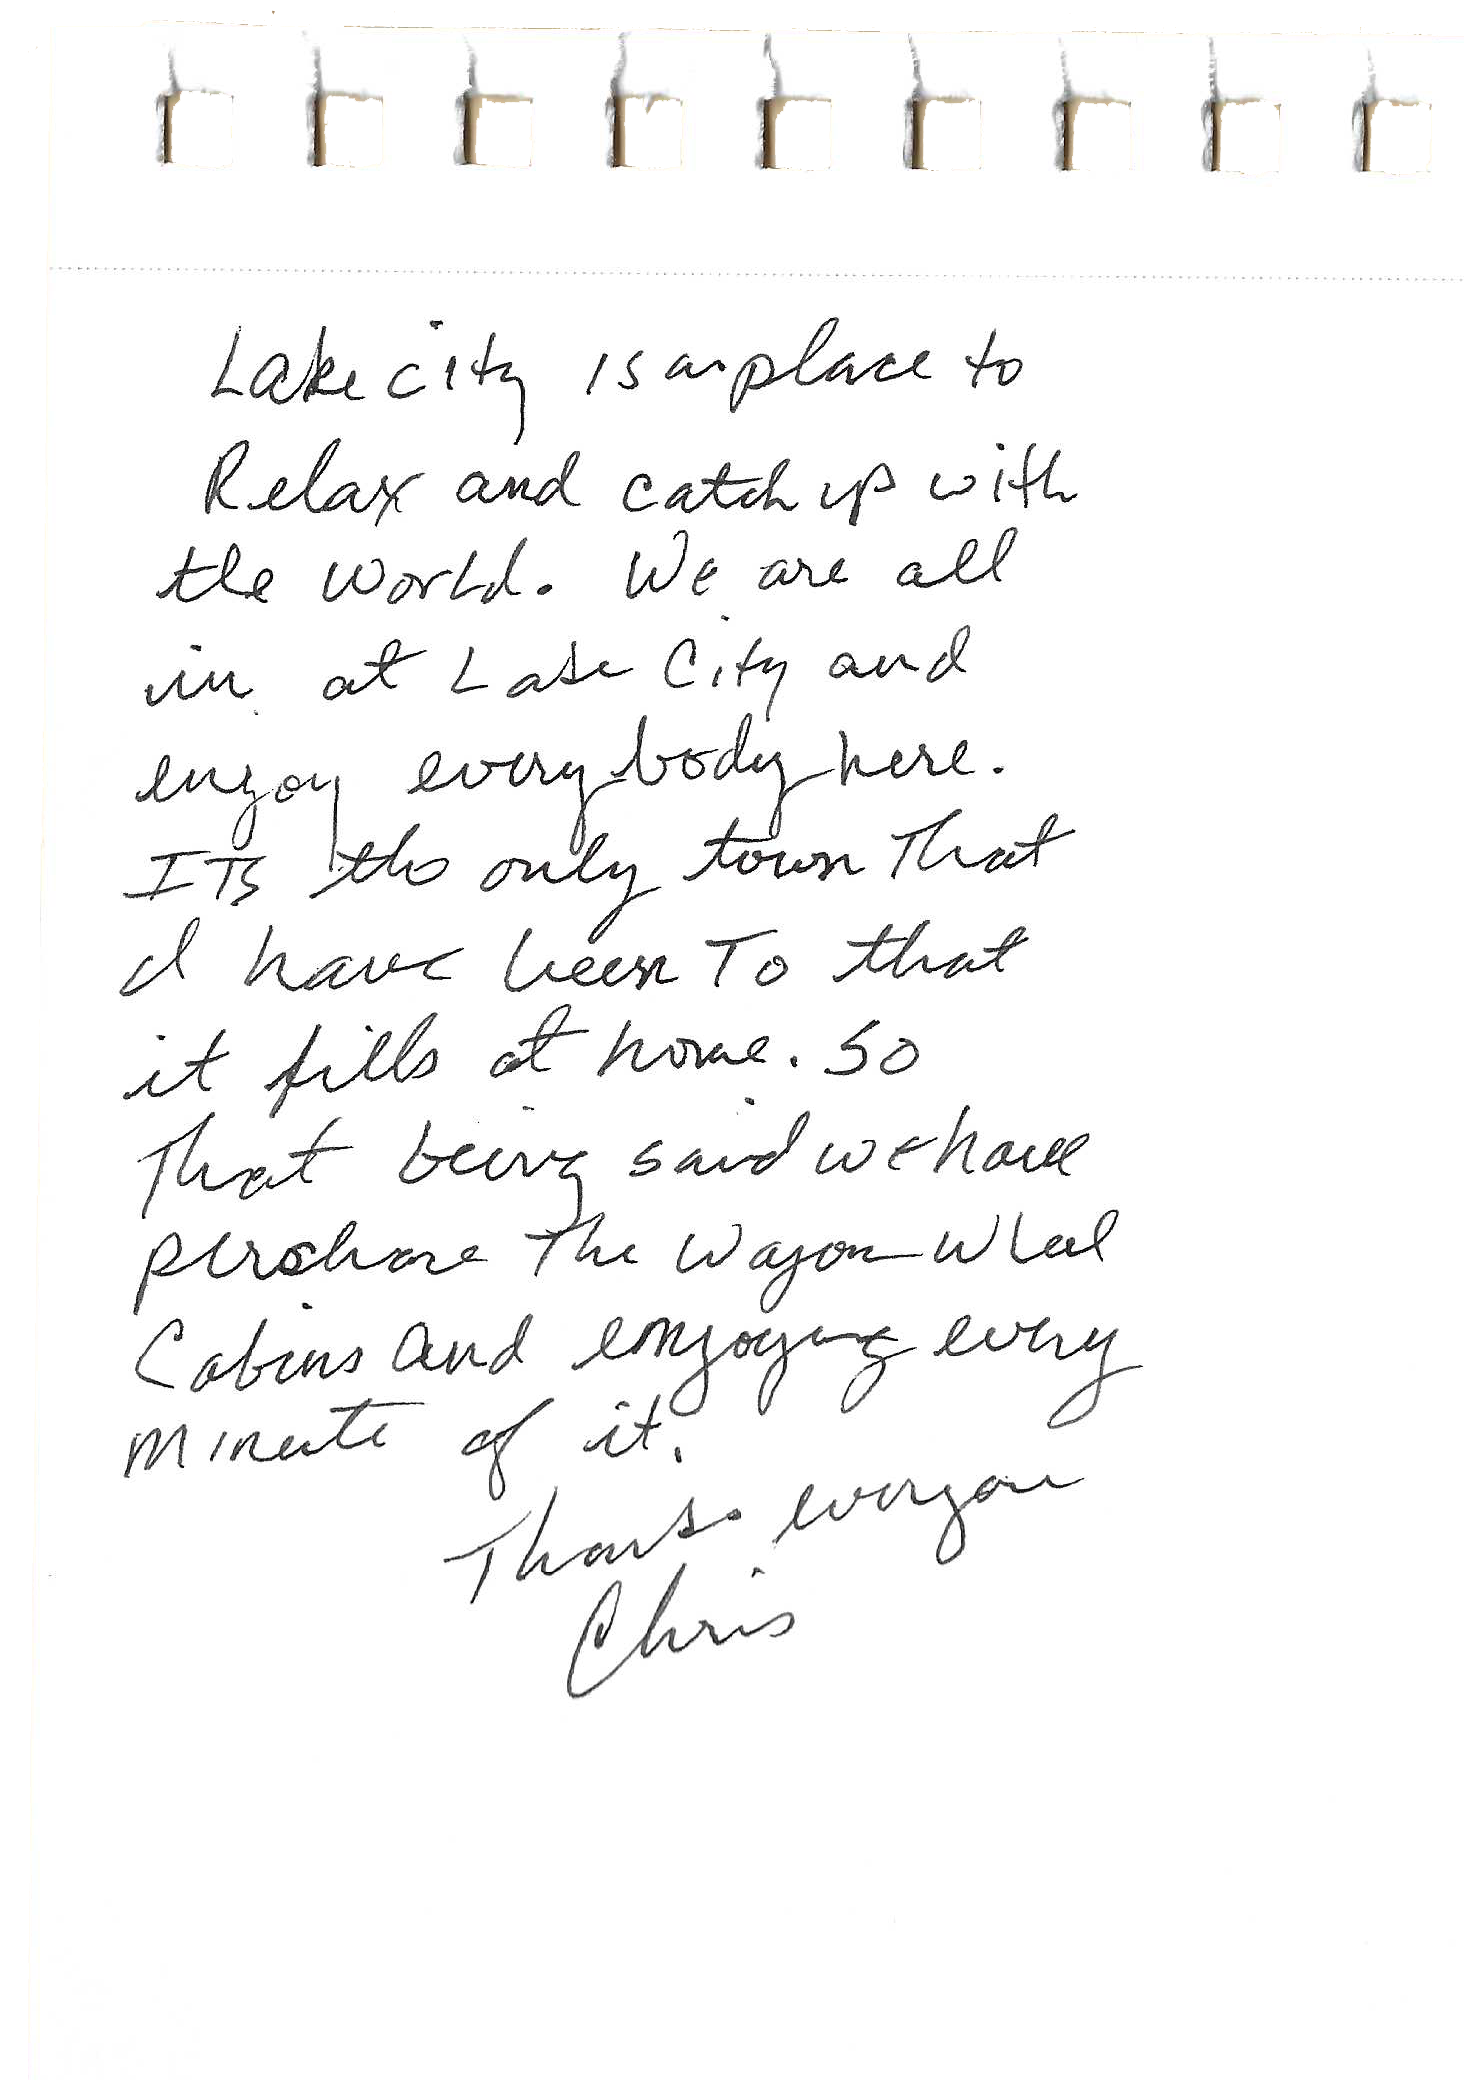 Lake city is a place to
Relax and catch up with
the World. We are all
in at Lake City and
enjoy everybody here.
ITs the only town That
I have been To that
it fills at home. So
That being said we have
purchase The Wagon Wheel
Cabins and enjoying every
minute of it.
Thanks everyone
Chris